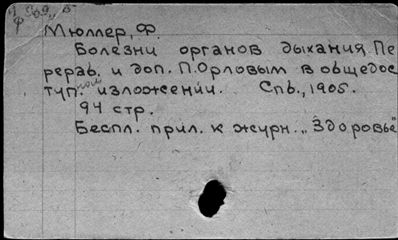 Мюллер, Ф.
Болезни органов дыхания. Пе
рераб. и доп. П. Орловым в общедос
тупном изложении. Спб., 1905.
94 стр.
Беспл. прил. к журн. „Здоровье"